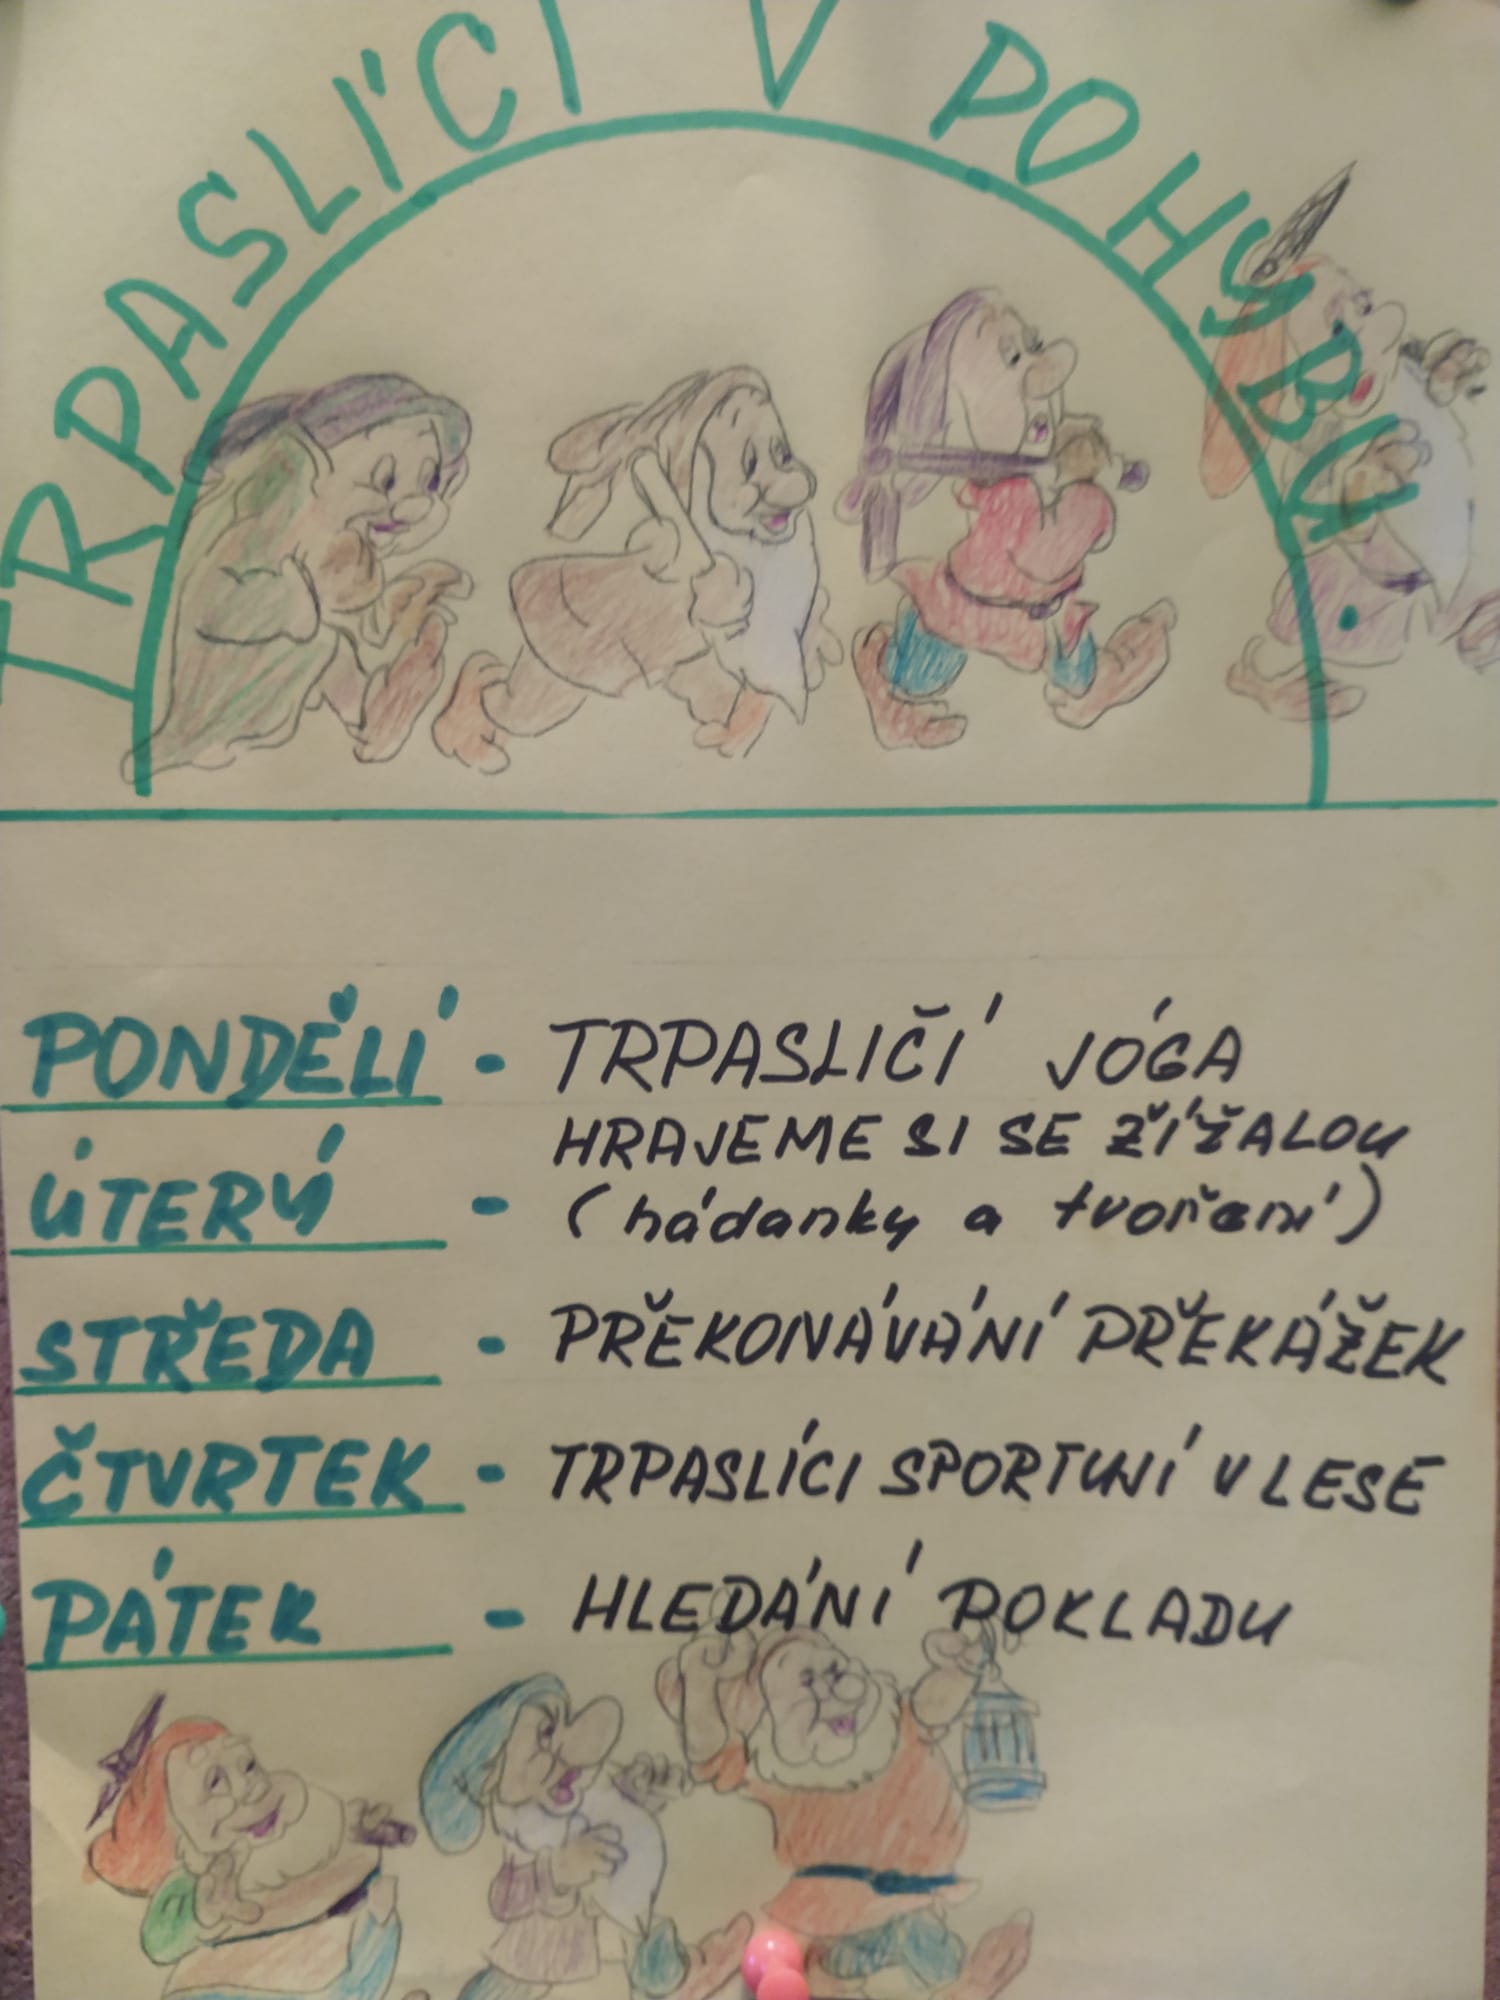 TRPASLÍCI V POHYBU
PONDĚLÍ - TRPASLIČÍ JÓGA
HRAJEME SI SE ŽÍŽALOU
ÚTERÝ - (hádanky a tvoření)
STŘEDA - PŘEKONÁVÁNÍ PŘEKÁŽEK
ČTVRTEK - TRPASLÍCI SPORTUJÍ V LESE
PÁTEK - HLEDÁNÍ POKLADU